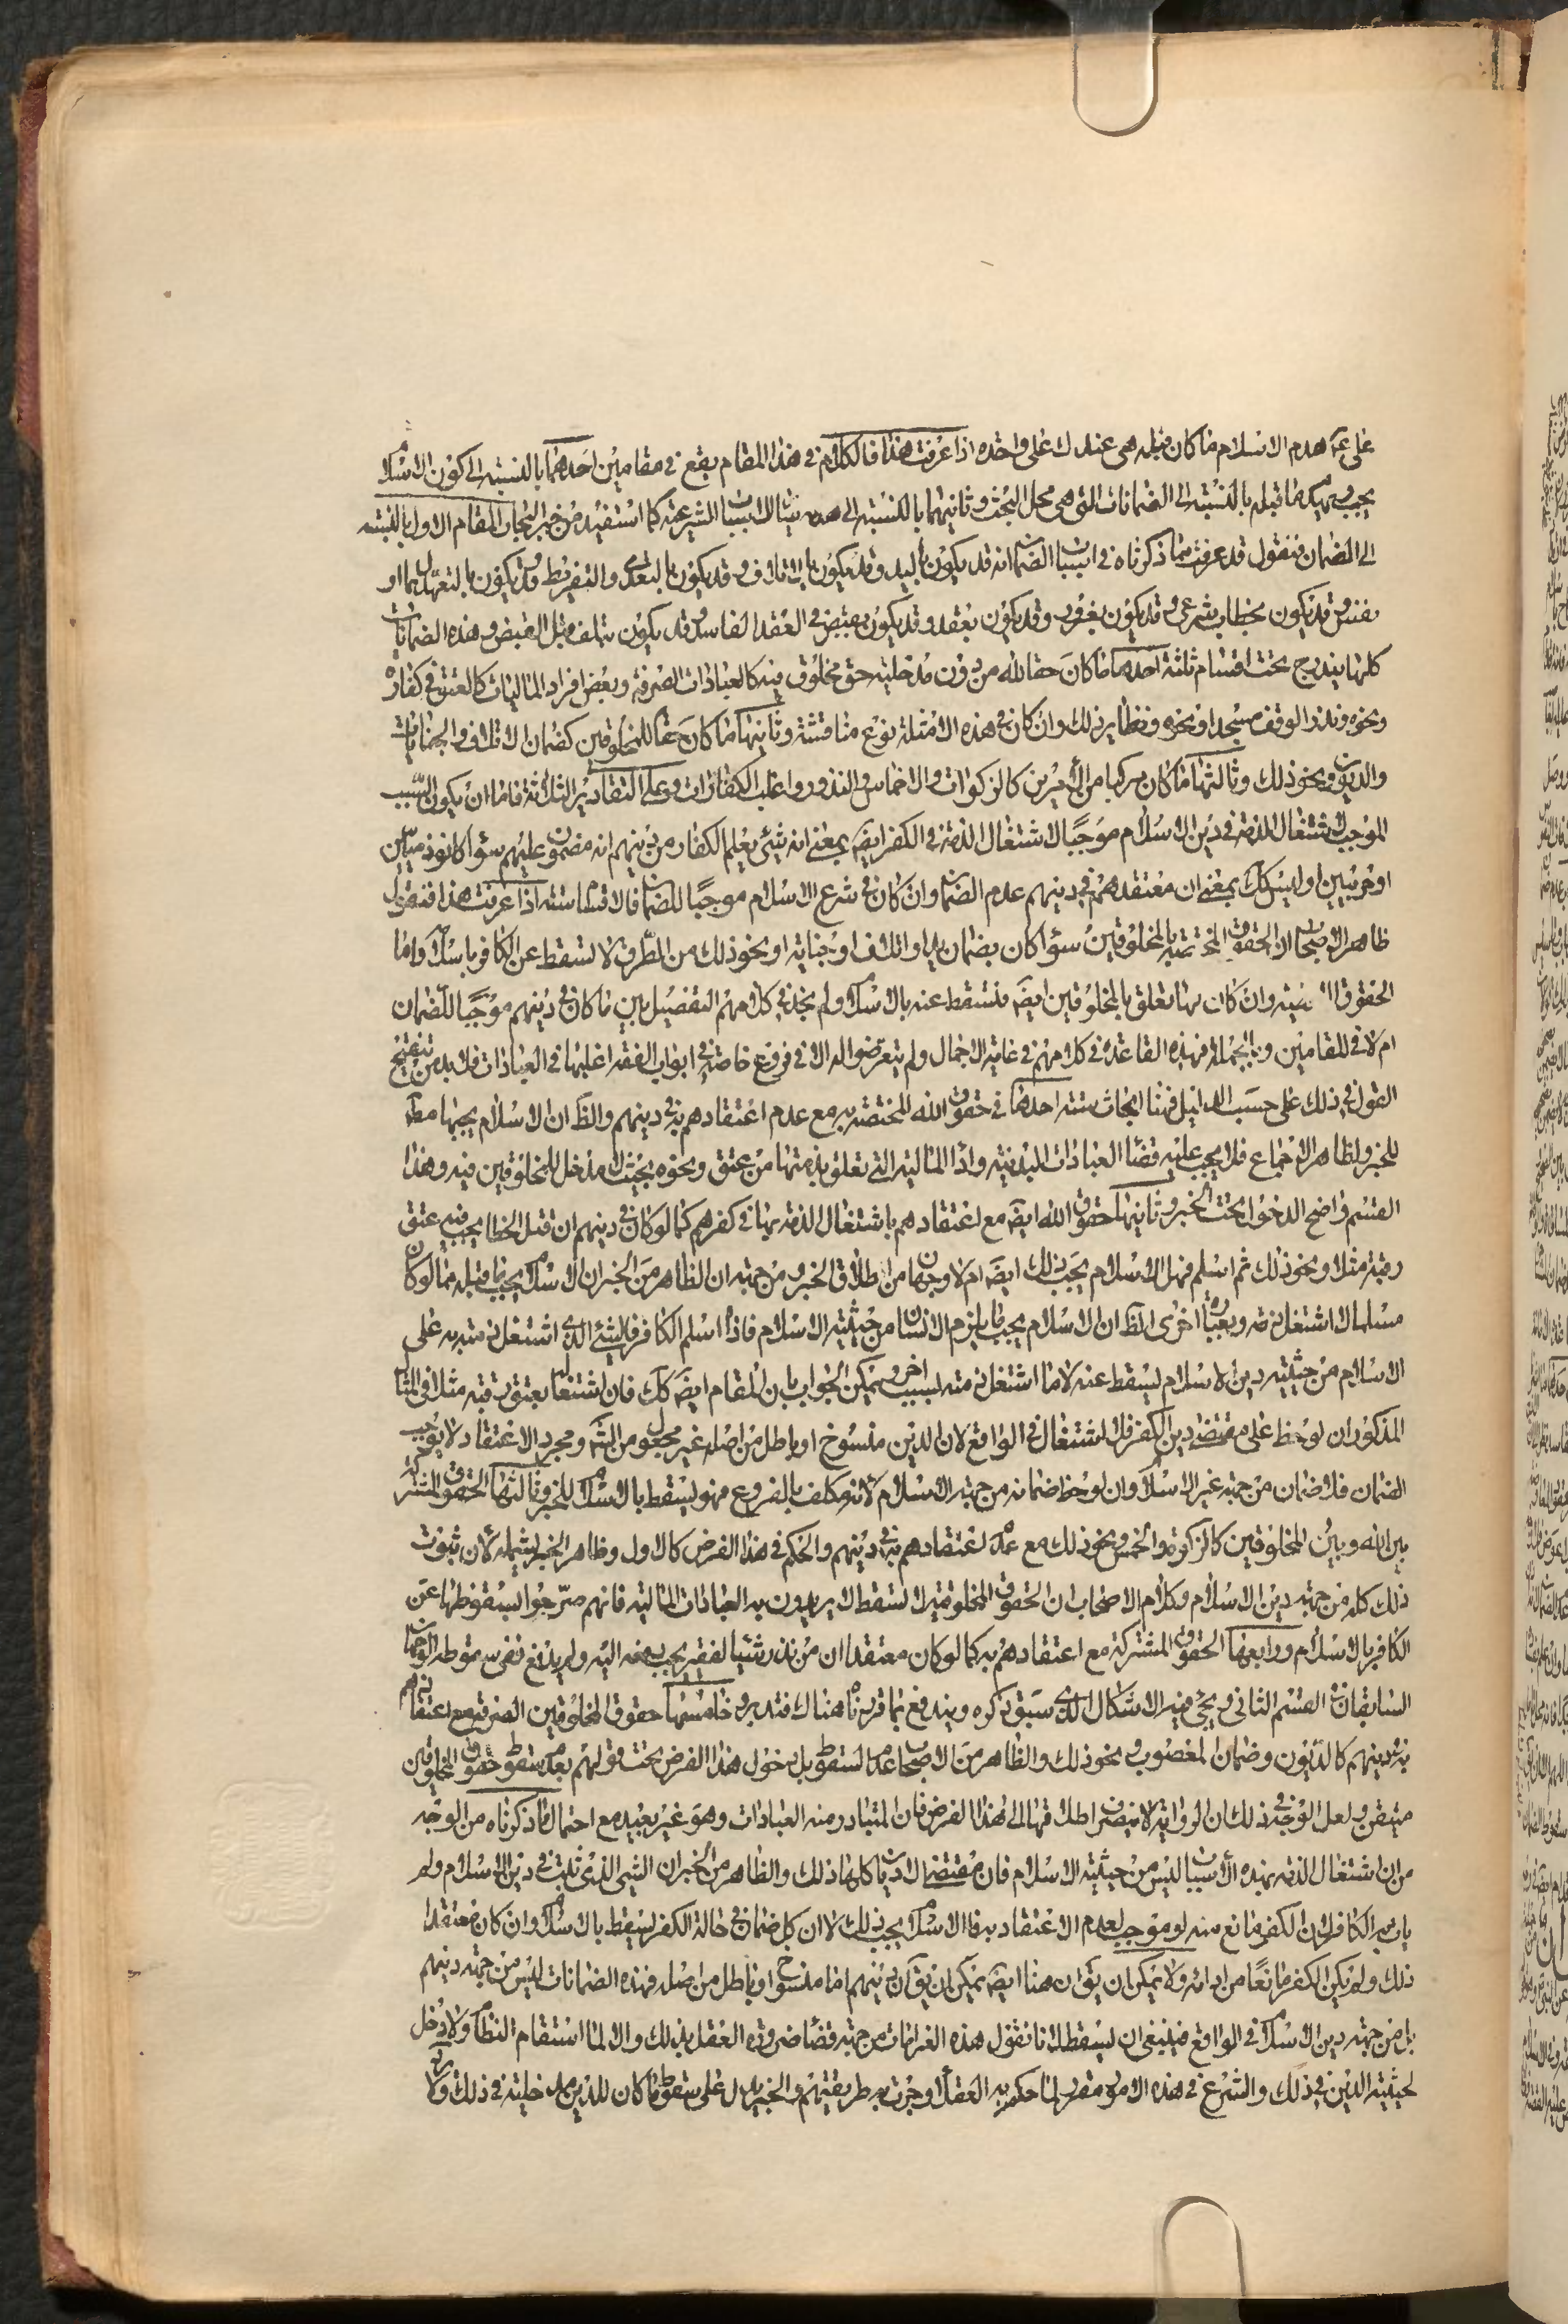 على عد هدم الاسلام ما كان قبله هى عندك على واحده اذا عرفت هذا فالكلام فى هذا المقام يقع فى مقامين احدهما بالنسبة الى كون الاسلام
يجب ويهدم ما قبله بالنسبة الى الضمانات التى هى محل البحث وثانيهما بالنسبة الى هدمه سائر الاسباب الشرعية كما استفيد من خبر الجبّ المقام الاول بالنسبه
الى الضمان فنقول قد عرفت مما ذكرناه فى اسباب الضمان انه قد يكون باليد وقد يكون بالاتلاف وقد يكون بالتعدى والتفريط وقد يكون بالتعهد بما او
نفس وقد يكون بخطاب شرعى وقد يكون بغرور وقد يكون بعقد وقد يكون بقبض فى العقد الفاسد وقد يكون بتلف قبل القبض وهذه الضمانات
كلها يندرج تحت اقسام ثلثة احدها ما كان حقا لله من دون مدخلية حق مخلوق فيه كالعبادات الصرفة وبعض افراد الماليات كالعتق فى كفارة
ونحوه ونذر الوقف مسجدا ونحوه ونظاير ذلك وان كان فى هذه الامثلة نوع مناقشة وثانيها ما كان حقا للمخلوقين كضمان الاتلاف والجنايات
والديون ونحو ذلك وثالثها ما كان مركبا من الامرين كالزكوات والاخماس والنذور واغلب الكفارات وعلى التقادير الثلاثة فاما ان يكون السبب
الموجب لاشتغال الذمة فى دين الاسلام موجبا لاشتغال الذمة فى الكفر ايضا بمعنى انه شئ يعلم الكفار من دينهم انه مضمون عليهم سواء كانوا ذميين
او حربيين او ليس كك بمعنى ان معتقدهم فى دينهم عدم الضمان وان كان فى شرع الاسلام موجبا للضمان فالاقسام ستة اذا عرفت هذا فنقول
ظاهر الاصحاب ان الحقوق المختصة بالمخلوقين سواء كان بضمان يد او اتلاف او جناية او نحو ذلك من الطرق لا تسقط عن الكافر باسلامه واما
الحقوق وان كان مما تعلق بالمخلوقين ايضا فتسقط عنه بالاسلام ولم نجد فى كلامهم التفصيل بين ما كان فى دينهم موجبا للضمان
ام لا فى المقامين وبالجملة فهذه القاعدة فى كلامهم فى غاية الاجمال ولم يتعرضوا له الا فى فروع خاصة فى ابواب الفقه اغلبها فى العبادات فلابد من تنقيح
القول فى ذلك على حسب الدليل فهنا ابحاث ستة احدها فى حقوق الله المختصة به مع عدم اعتقادهم به فى دينهم والظ ان الاسلام يجبها مط
للخبر ولظاهر الاجماع فلا يجب عليه قضاء العبادات البدنية واداء المالية التى تعلق بذمتها من عتق ونحوه بحيث لا مدخل للمخلوقين فيه وهذا
القسم واضح الدخول تحت الخبر وثانيها حقوق الله ايضا مع اعتقادهم باشتغال الذمة بها فى كفرهم كما لو كان فى دينهم ان قتل الخطا يجب فيه عتق
رقبة مثلا ونحو ذلك ثم اسلم فهل الاسلام يجب ذلك ايضا ام لا وجهان من اطلاق الخبر ومن جهة ان الظاهر من الخبر ان الاسلام يجب ما قبله مما لو كان
مسلما لاشتغل ذمته وبعبارة اخرى الظ ان الاسلام يجب ما يلزم الانسان من حيثية الاسلام فاذا اسلم الكافر فالشئ الذى اشتغل ذمته به على
الاسلام من حيثية دين الاسلام يسقط عنه لا ما اشتغل ذمته بسبب اخر ويمكن الجواب بان المقام ايضا كك فان اشتغاله بعتق رقبة مثلا فى المثال
المذكور ان لوحظ على مقتضى دين الكفر فلا اشتغال فى الواقع لان الدين منسوخ او باطل من اصله غير مجعول من الله ومجرد الاعتقاد لا يوجب
الضمان فلا ضمان من جهة غير الاسلام وان لوحظ ضمانه من جهة الاسلام لانه مكلف بالفروع فهو يسقط بالاسلام للخبر وثالثها الحقوق المشتركة
بين الله وبين المخلوقين كالزكوة والخمس ونحو ذلك مع عدم اعتقادهم به فى دينهم والحكم فى هذا الفرض كالاول وظاهر الخبر يشمله لان ثبوت
ذلك كله من جهة دين الاسلام وكلام الاصحاب ان الحقوق المخلوقية لا تسقط لا يريدون به العبادات المالية فانهم صرحوا بسقوطها عن
الكافر بالاسلام ورابعها الحقوق المشتركة مع اعتقادهم به كما لو كان معتقدا ان من نذر شيئا لفقير يجب دفعه اليه ولم يدفع ففى سقوطه الوجهان
السابقان فى القسم الثانى ويجئ فيه الاشكال الذى سبق ذكره ويندفع بما قررناه هناك فتدبر وخامسها حقوق المخلوقين الصرفة مع اعتقادهم
به فى دينهم كالديون وضمان المغصوب ونحو ذلك والظاهر من الاصحاب عدم السقوط بل دخول هذا الفرض تحت قولهم بعدم سقوط حقوق المخلوقين
متيقن ولعل الوجه فى ذلك ان الرواية لا ينصرف اطلاقها الى هذا الفرض فان المتبادر منه العبادات وهو غير بعيد مع احتمال ما ذكرناه من الوجه
من ان اشتغال الذمة بهذه الاسباب ليس من حيثية الاسلام فان مقتضى الاديان كلها ذلك والظاهر من الخبر ان الشئ الذى ثبت فى دين الاسلام ولم
يات به الكافر لان الكفر مانع منه لو موجب لعدم الاعتقاد به فالاسلام يجب ذلك لا ان كل ضمان فى حالة الكفر يسقط بالاسلام وان كان معتقدا
ذلك ولم يكن الكفر مانعا من ادائه ولا يمكن ان يق ان هنا ايضا يمكن ان يق ان دينهم اما منسوخ او باطل من اصله فهذه الضمانات ليس من جهة دينهم
بل من جهة دين الاسلام فى الواقع فينبغى ان يسقط لانا نقول هذه الغرامات من جهة قضاء ضرورة العقل بذلك والا لما استقام النظام ولا دخل
لحيثية الدين فى ذلك والشرع فى هذه الامور مقرر لما حكم به العقلاء وجرت به طريقتهم والخبر يدل على سقوط ما كان للدين مدخلية فى ذلك ولا